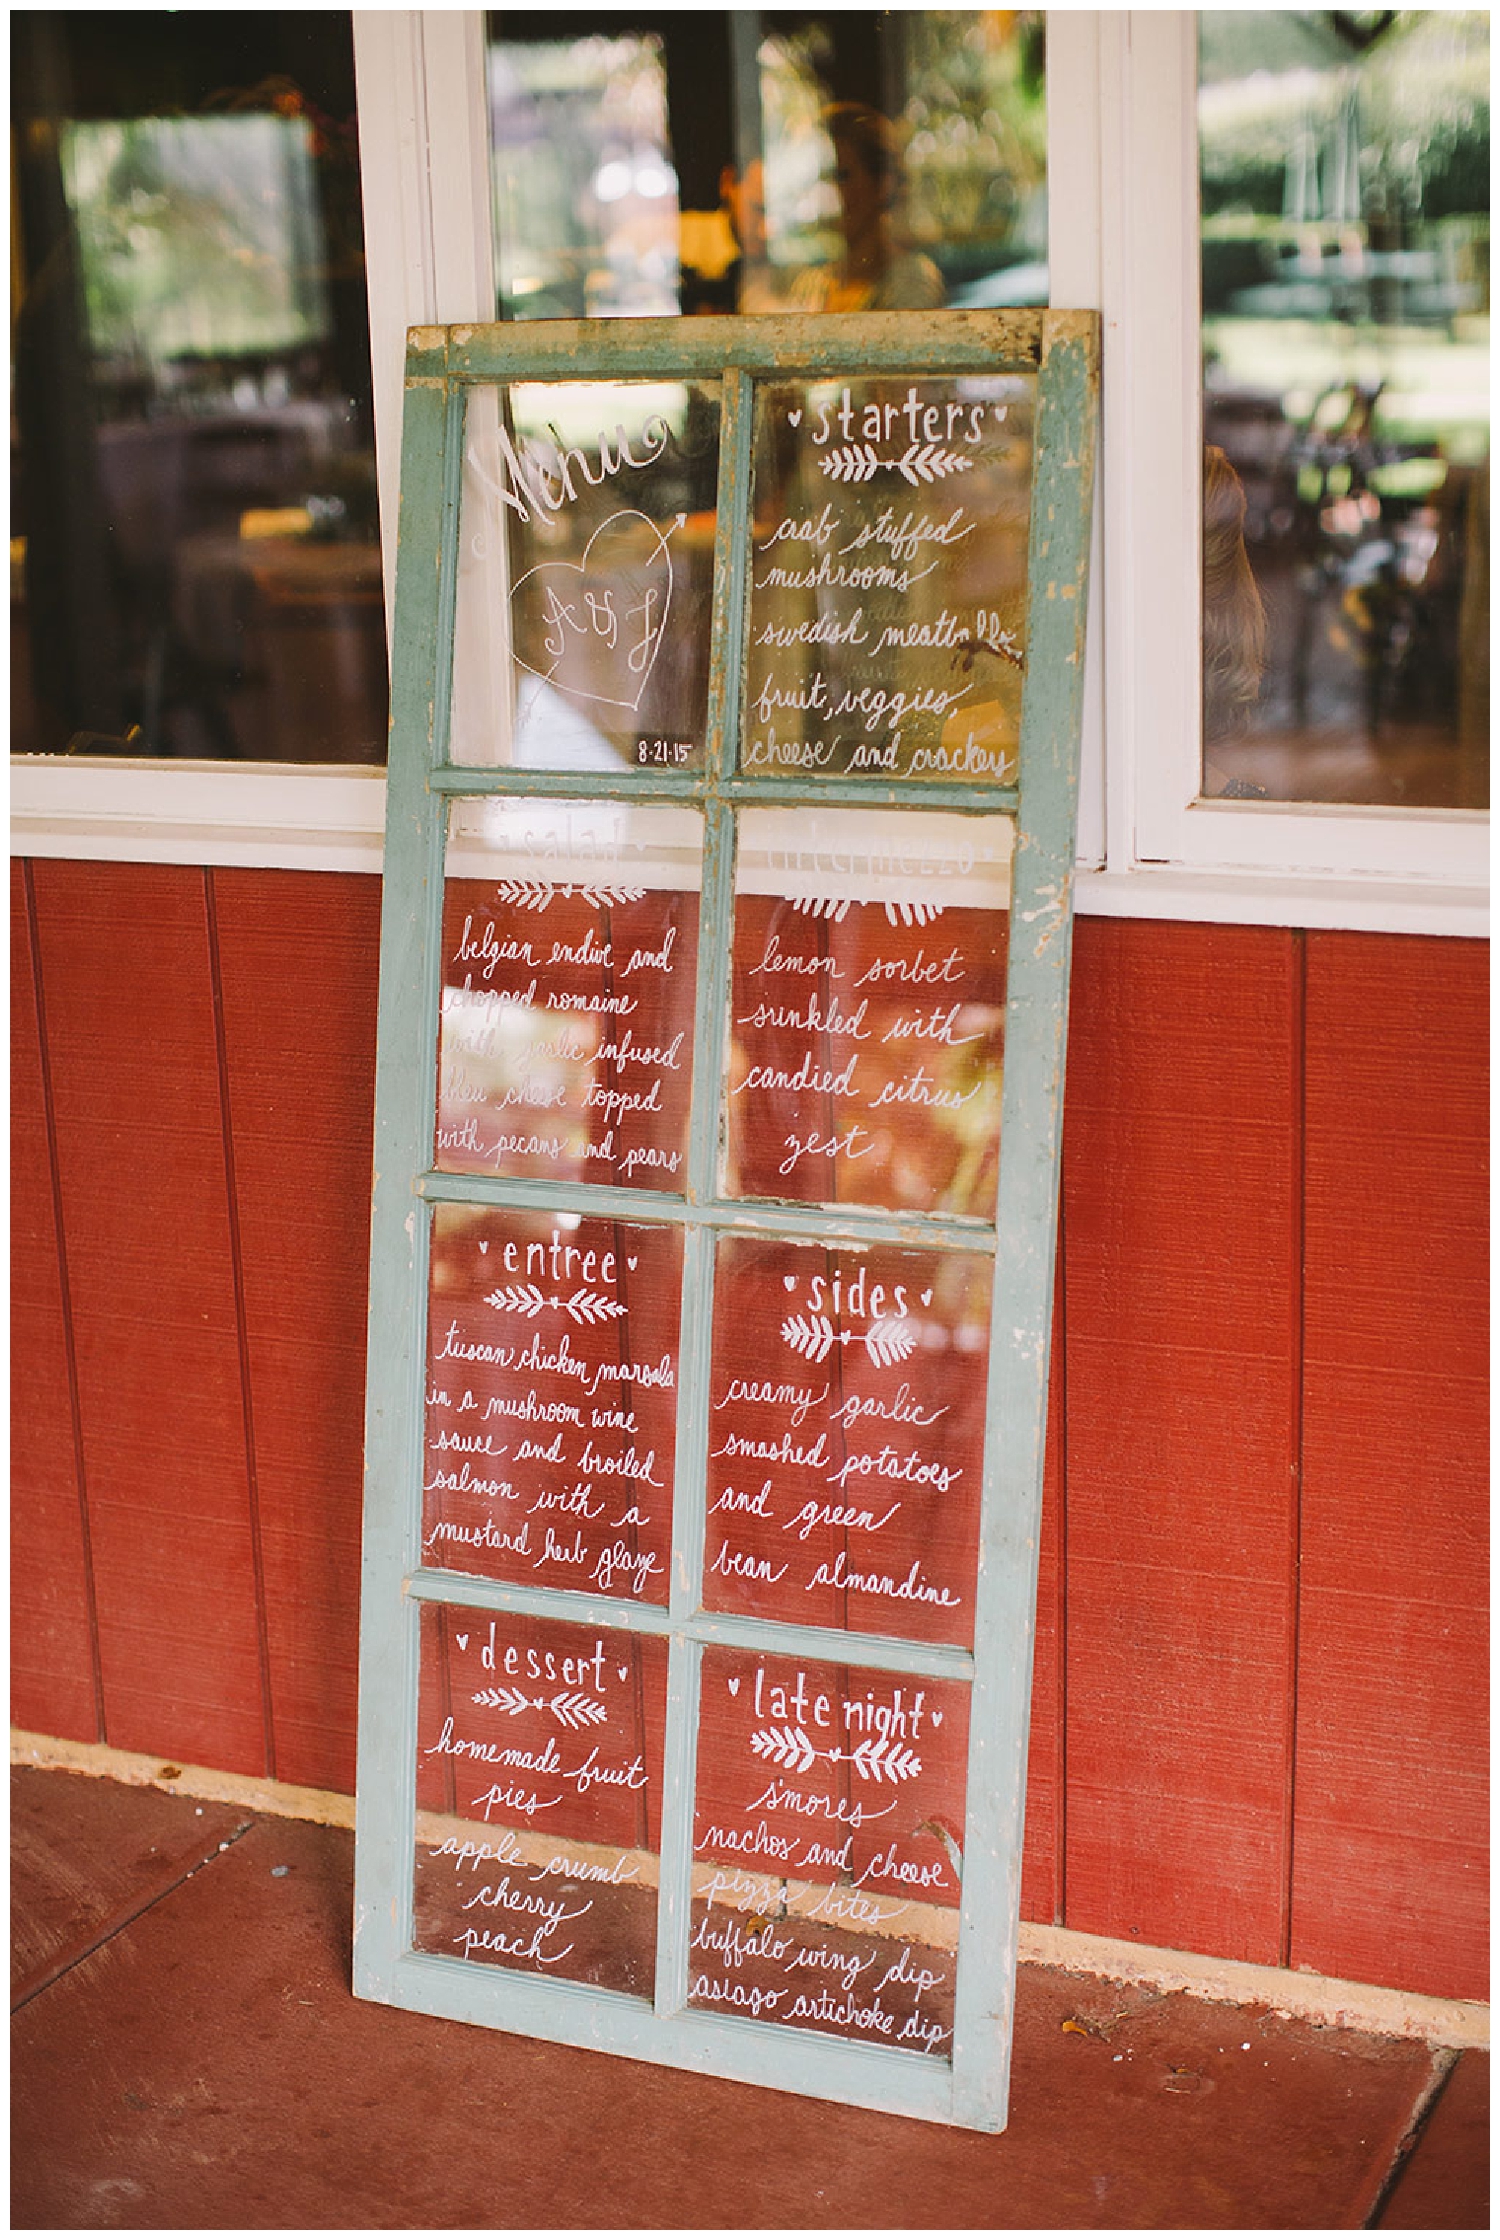 Menu
A & J
8·21·15
starters
crab stuffed
mushrooms
swedish meatballs
fruit, veggies,
cheese and crackers
salad
belgian endive and
chopped romaine
with garlic infused
bleu cheese topped
with pecans and pears
intermezzo
lemon sorbet
srinkled with
candied citrus
zest
entree
tuscan chicken marsala
in a mushroom wine
sauce and broiled
salmon with a
mustard herb glaze
sides
creamy garlic
smashed potatoes
and green
bean almandine
dessert
homemade fruit
pies
apple crumb
cherry
peach
late night
s'mores
nachos and cheese
pizza bites
buffalo wing dip
asiago artichoke dip